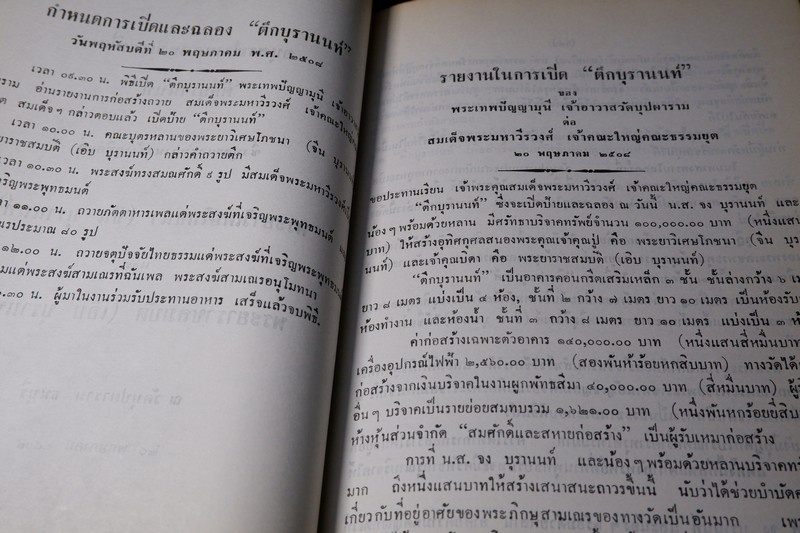 กำหนดการเปิดและฉลอง “ตึกบุรานนท์”
วันพฤหัสบดีที่ ๒๐ พฤษภาคม พ.ศ. ๒๕๐๘
เวลา ๐๙.๓๐ น. พิธีเปิด “ตึกบุรานนท์” พระเทพปัญญามุนี เจ้าอาวาส
ราม อ่านรายงานการก่อสร้างถวาย สมเด็จพระมหาวีรวงศ์ เจ้าคณะใหญ่
สมเด็จฯ กล่าวตอบแล้ว เปิดป้าย “ตึกบุรานนท์”
เวลา ๑๐.๐๐ น. คณะบุตรหลานของพระยาวิเศษโภชนา (จีน
ยาราชสมบัติ (เอิบ บุรานนท์) กล่าวคำถวายตึก
เวลา ๑๐.๓๐ น. พระสงฆ์ทรงสมณศักดิ์ ๙ รูป มีสมเด็จพระมหาวีรวงศ์
เจริญพระพุทธมนต์
๑๑.๐๐ น. ถวายภัตตาหารเพลแด่พระสงฆ์ที่เจริญพระพุทธมนต์
ประมาณ ๘๐ รูป
๑๒.๐๐ น. ถวายจตุปัจจัยไทยธรรมแด่พระสงฆ์ที่เจริญพระพุทธมนต์
แด่พระสงฆ์สามเณรที่ฉันเพล พระสงฆ์สามเณรอนุโมทนา
.๓๐ น. ผู้มาในงานร่วมรับประทานอาหาร เสร็จแล้วจบพิธี.
รายงานในการเปิด “ตึกบุรานนท์”
ของ
พระเทพปัญญามุนี เจ้าอาวาสวัดบุปผาราม
ต่อ
สมเด็จพระมหาวีรวงศ์ เจ้าคณะใหญ่คณะธรรมยุต
๒๐ พฤษภาคม ๒๕๐๘
ขอประทานเรียน เจ้าพระคุณสมเด็จพระมหาวีรวงศ์ เจ้าคณะใหญ่คณะธรรมยุต
“ตึกบุรานนท์” ซึ่งจะเปิดป้ายและฉลอง ณ วันนี้ น.ส. จง บุรานนท์ และ
น้อง ๆ พร้อมด้วยหลาน มีศรัทธาบริจาคทรัพย์จำนวน ๑๐๐,๐๐๐.๐๐ บาท (หนึ่งแสน
บาท) ให้สร้างอุทิศกุศลสนองพระคุณเจ้าคุณปู่ คือ พระยาวิเศษโภชนา (จีน บุรา
นนท์) และเจ้าคุณบิดา คือ พระยาราชสมบัติ (เอิบ บุรานนท์)
“ตึกบุรานนท์” เป็นอาคารคอนกรีตเสริมเหล็ก ๓ ชั้น ชั้นล่างกว้าง ๖ เม
ยาว ๘ เมตร แบ่งเป็น ๔ ห้อง, ชั้นที่ ๒ กว้าง ๗ เมตร ยาว ๑๐ เมตร เป็นห้องรับ
ห้องทำงาน และห้องน้ำ ชั้นที่ ๓ กว้าง ๘ เมตร ยาว ๑๐ เมตร แบ่งเป็น ๓ ห้
ค่าก่อสร้างเฉพาะตัวอาคาร ๑๔๐,๐๐๐.๐๐ บาท (หนึ่งแสนสี่หมื่นบาท
เครื่องอุปกรณ์ไฟฟ้า ๒,๕๖๐.๐๐ บาท (สองพันห้าร้อยหกสิบบาท) ทางวัดได้
ก่อสร้างจากเงินบริจาคในงานผูกพัทธสีมา ๔๐,๐๐๐.๐๐ บาท (สี่หมื่นบาท) ผู้
อื่น ๆ บริจาคเป็นรายย่อยสมทบรวม ๑,๖๒๑.๐๐ บาท (หนึ่งพันหกร้อยยี่สิบ
ห้างหุ้นส่วนจำกัด “สมศักดิ์และสหายก่อสร้าง” เป็นผู้รับเหมาก่อสร้าง
การที่ น.ส. จง บุรานนท์ และน้อง ๆ พร้อมด้วยหลานบริจาคทรั
มาก ถึงหนึ่งแสนบาทให้สร้างเสนาสนะถาวรขึ้นนี้ นับว่าได้ช่วยบำบัด
เกี่ยวกับที่อยู่อาศัยของพระภิกษุสามเณรของทางวัดเป็นอันมาก เพ